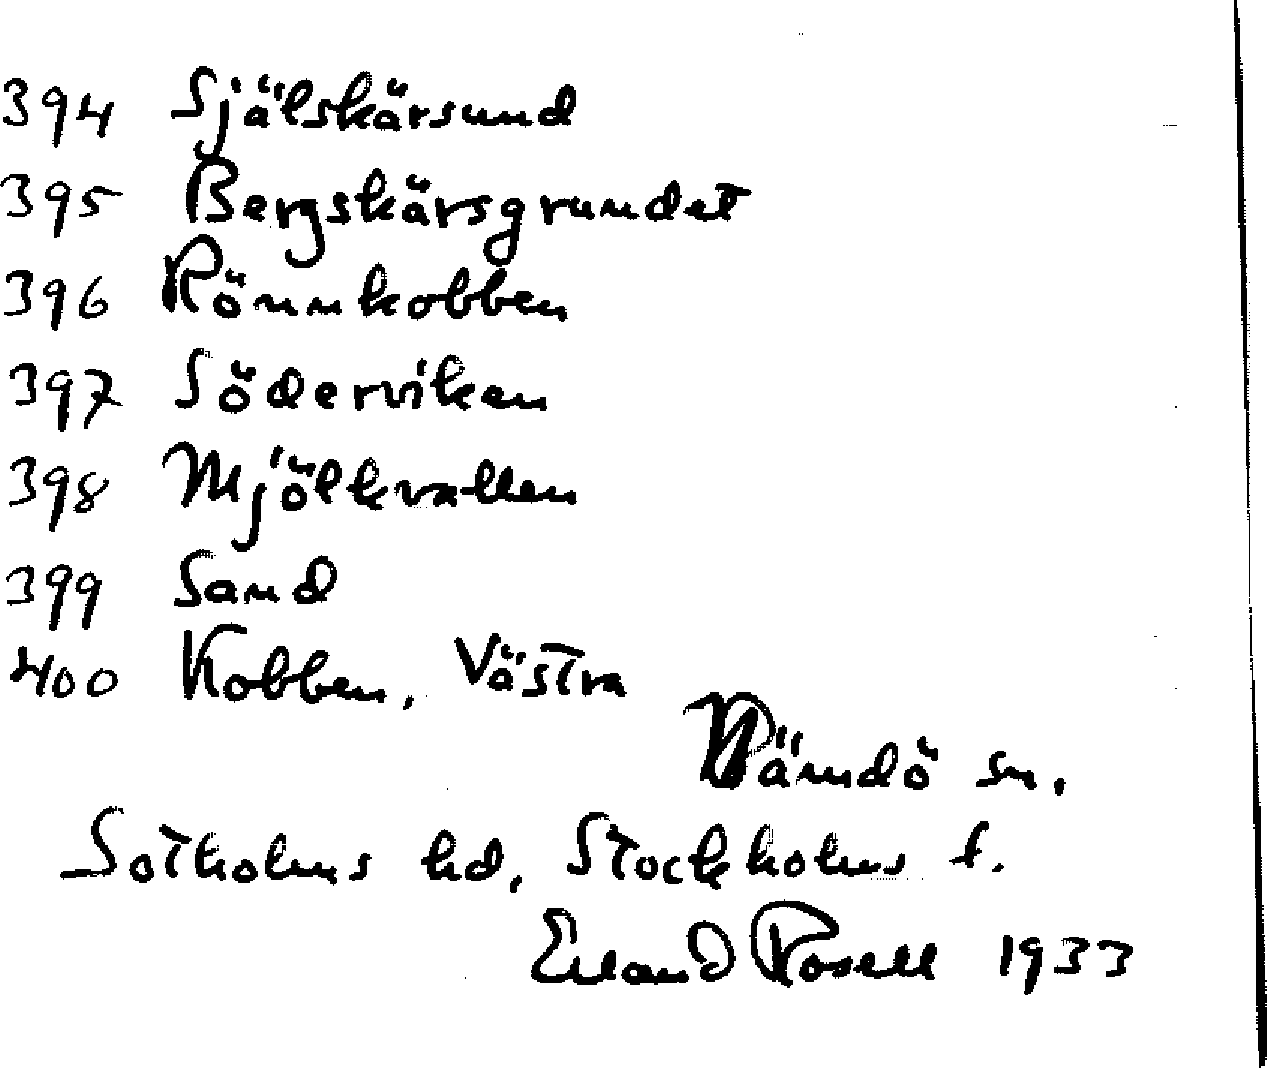 394 Själskärsund
395 Bergskärsgrundet
396 Rönnkobben
397 Söderviken
398 Mjölkvallen
399 Sand
400 Kobben, Västra
Nämdö sn.
Sotholms hd, Stockholms l.
Erland Rosell 1933